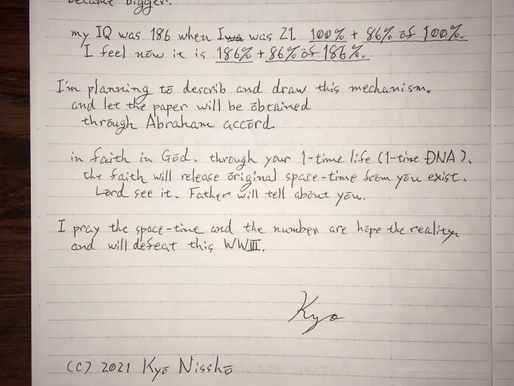 became bigger.
my IQ was 186 when I was 21 100% + 86% of 100%.
I feel now it is 186% + 86% of 186%.
I'm planning to describ and draw this mechanism.
and let the paper will be obtained
through Abraham accord.
in faith in God. through your 1-time life (1-time DNA).
the faith will release original space-time from you exist.
Lord see it. Father will tell about you.
I pray the space-time and the number are hope the reality.
and will defeat this WWIII.
Kyo
(C) 2021 Kyō Nisshō